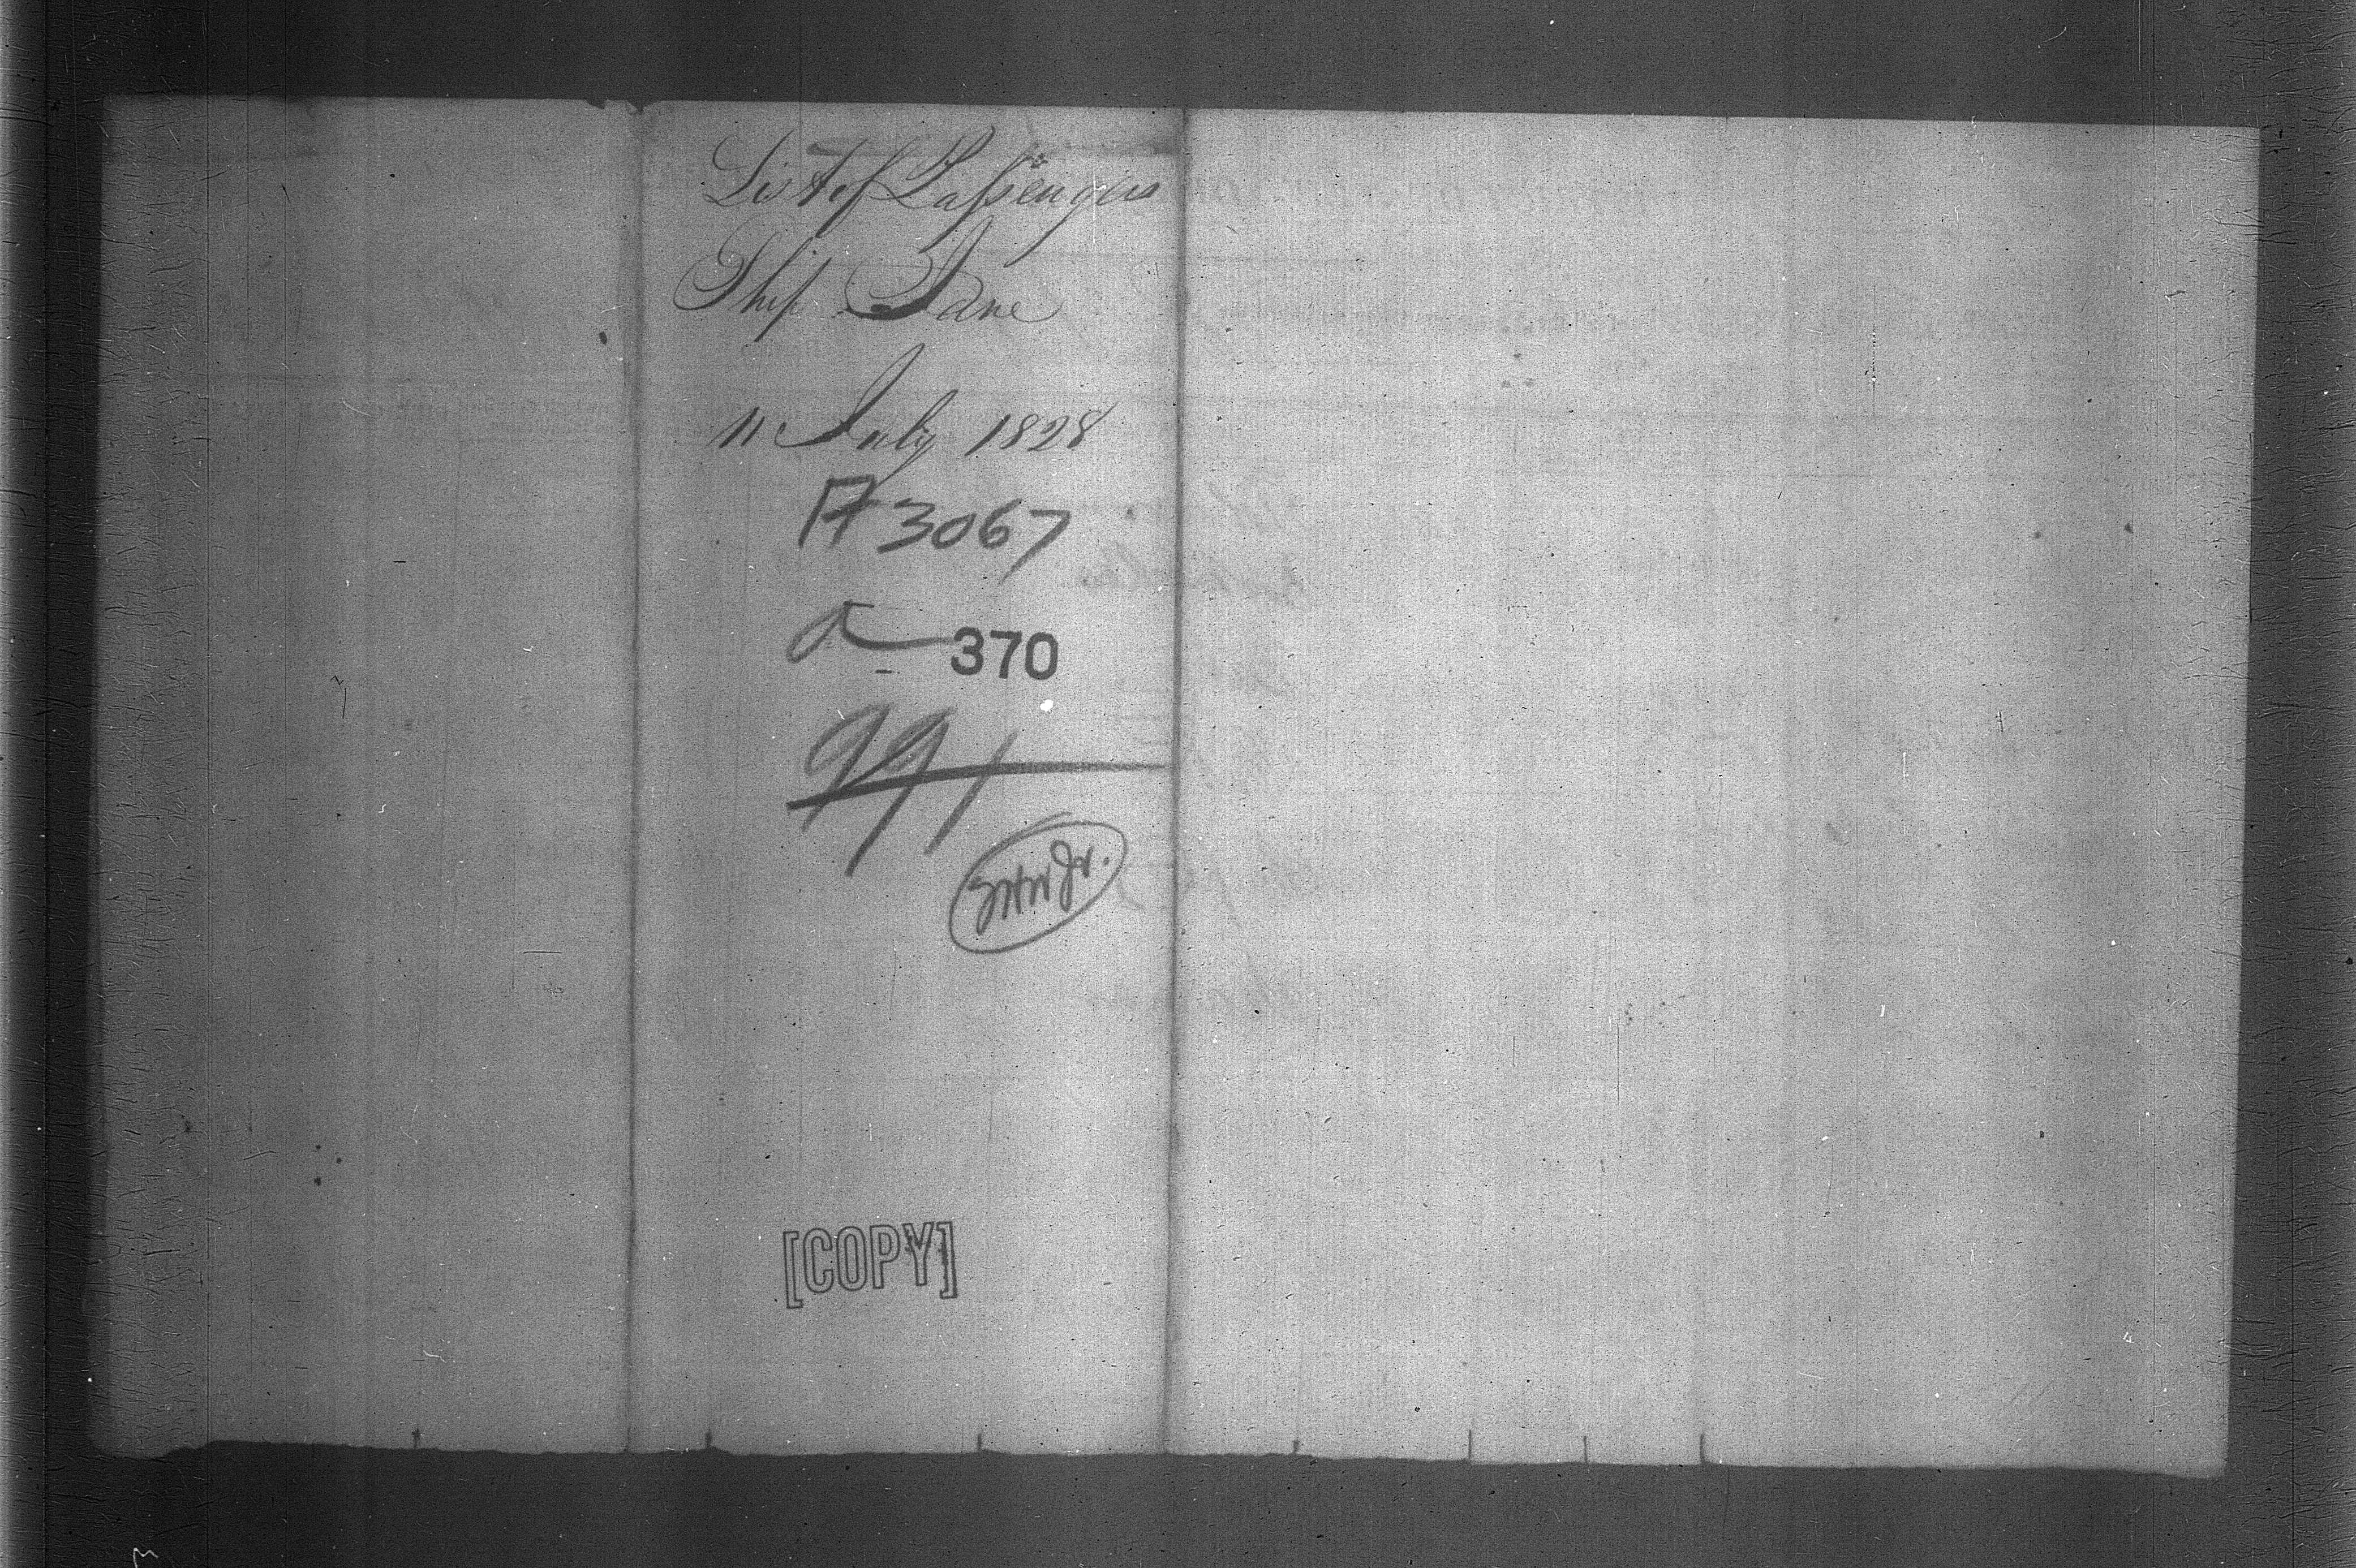 List of Passengers
Ship Jane
11 July 1828
A 3067
a 370
991
[COPY]